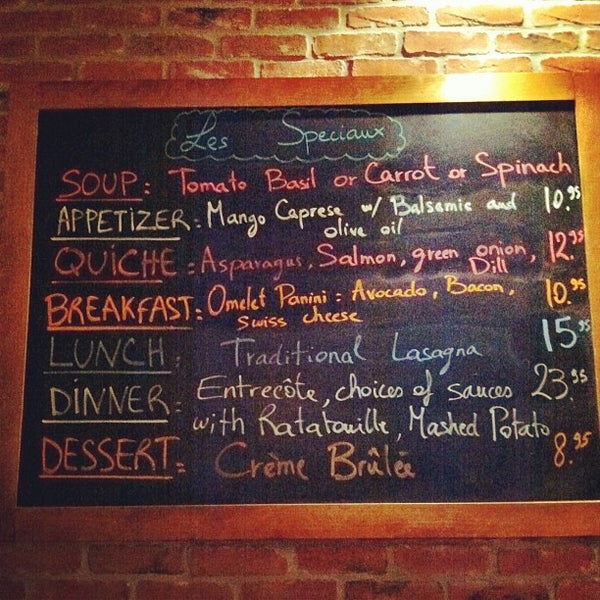 Les Speciaux
SOUP: Tomato Basil or Carrot or Spinach
APPETIZER: Mango Caprese w/ Balsamic and 10.95
olive oil
QUICHE: Asparagus, Salmon, green onion, 12.95
Dill
BREAKFAST: Omelet Panini: Avocado, Bacon, 10.95
swiss cheese
LUNCH: Traditional Lasagna 15.95
DINNER: Entrecôte, choices of sauces 23.95
with Ratatouille, Mashed Potato
DESSERT: Crème Brûlée 8.95